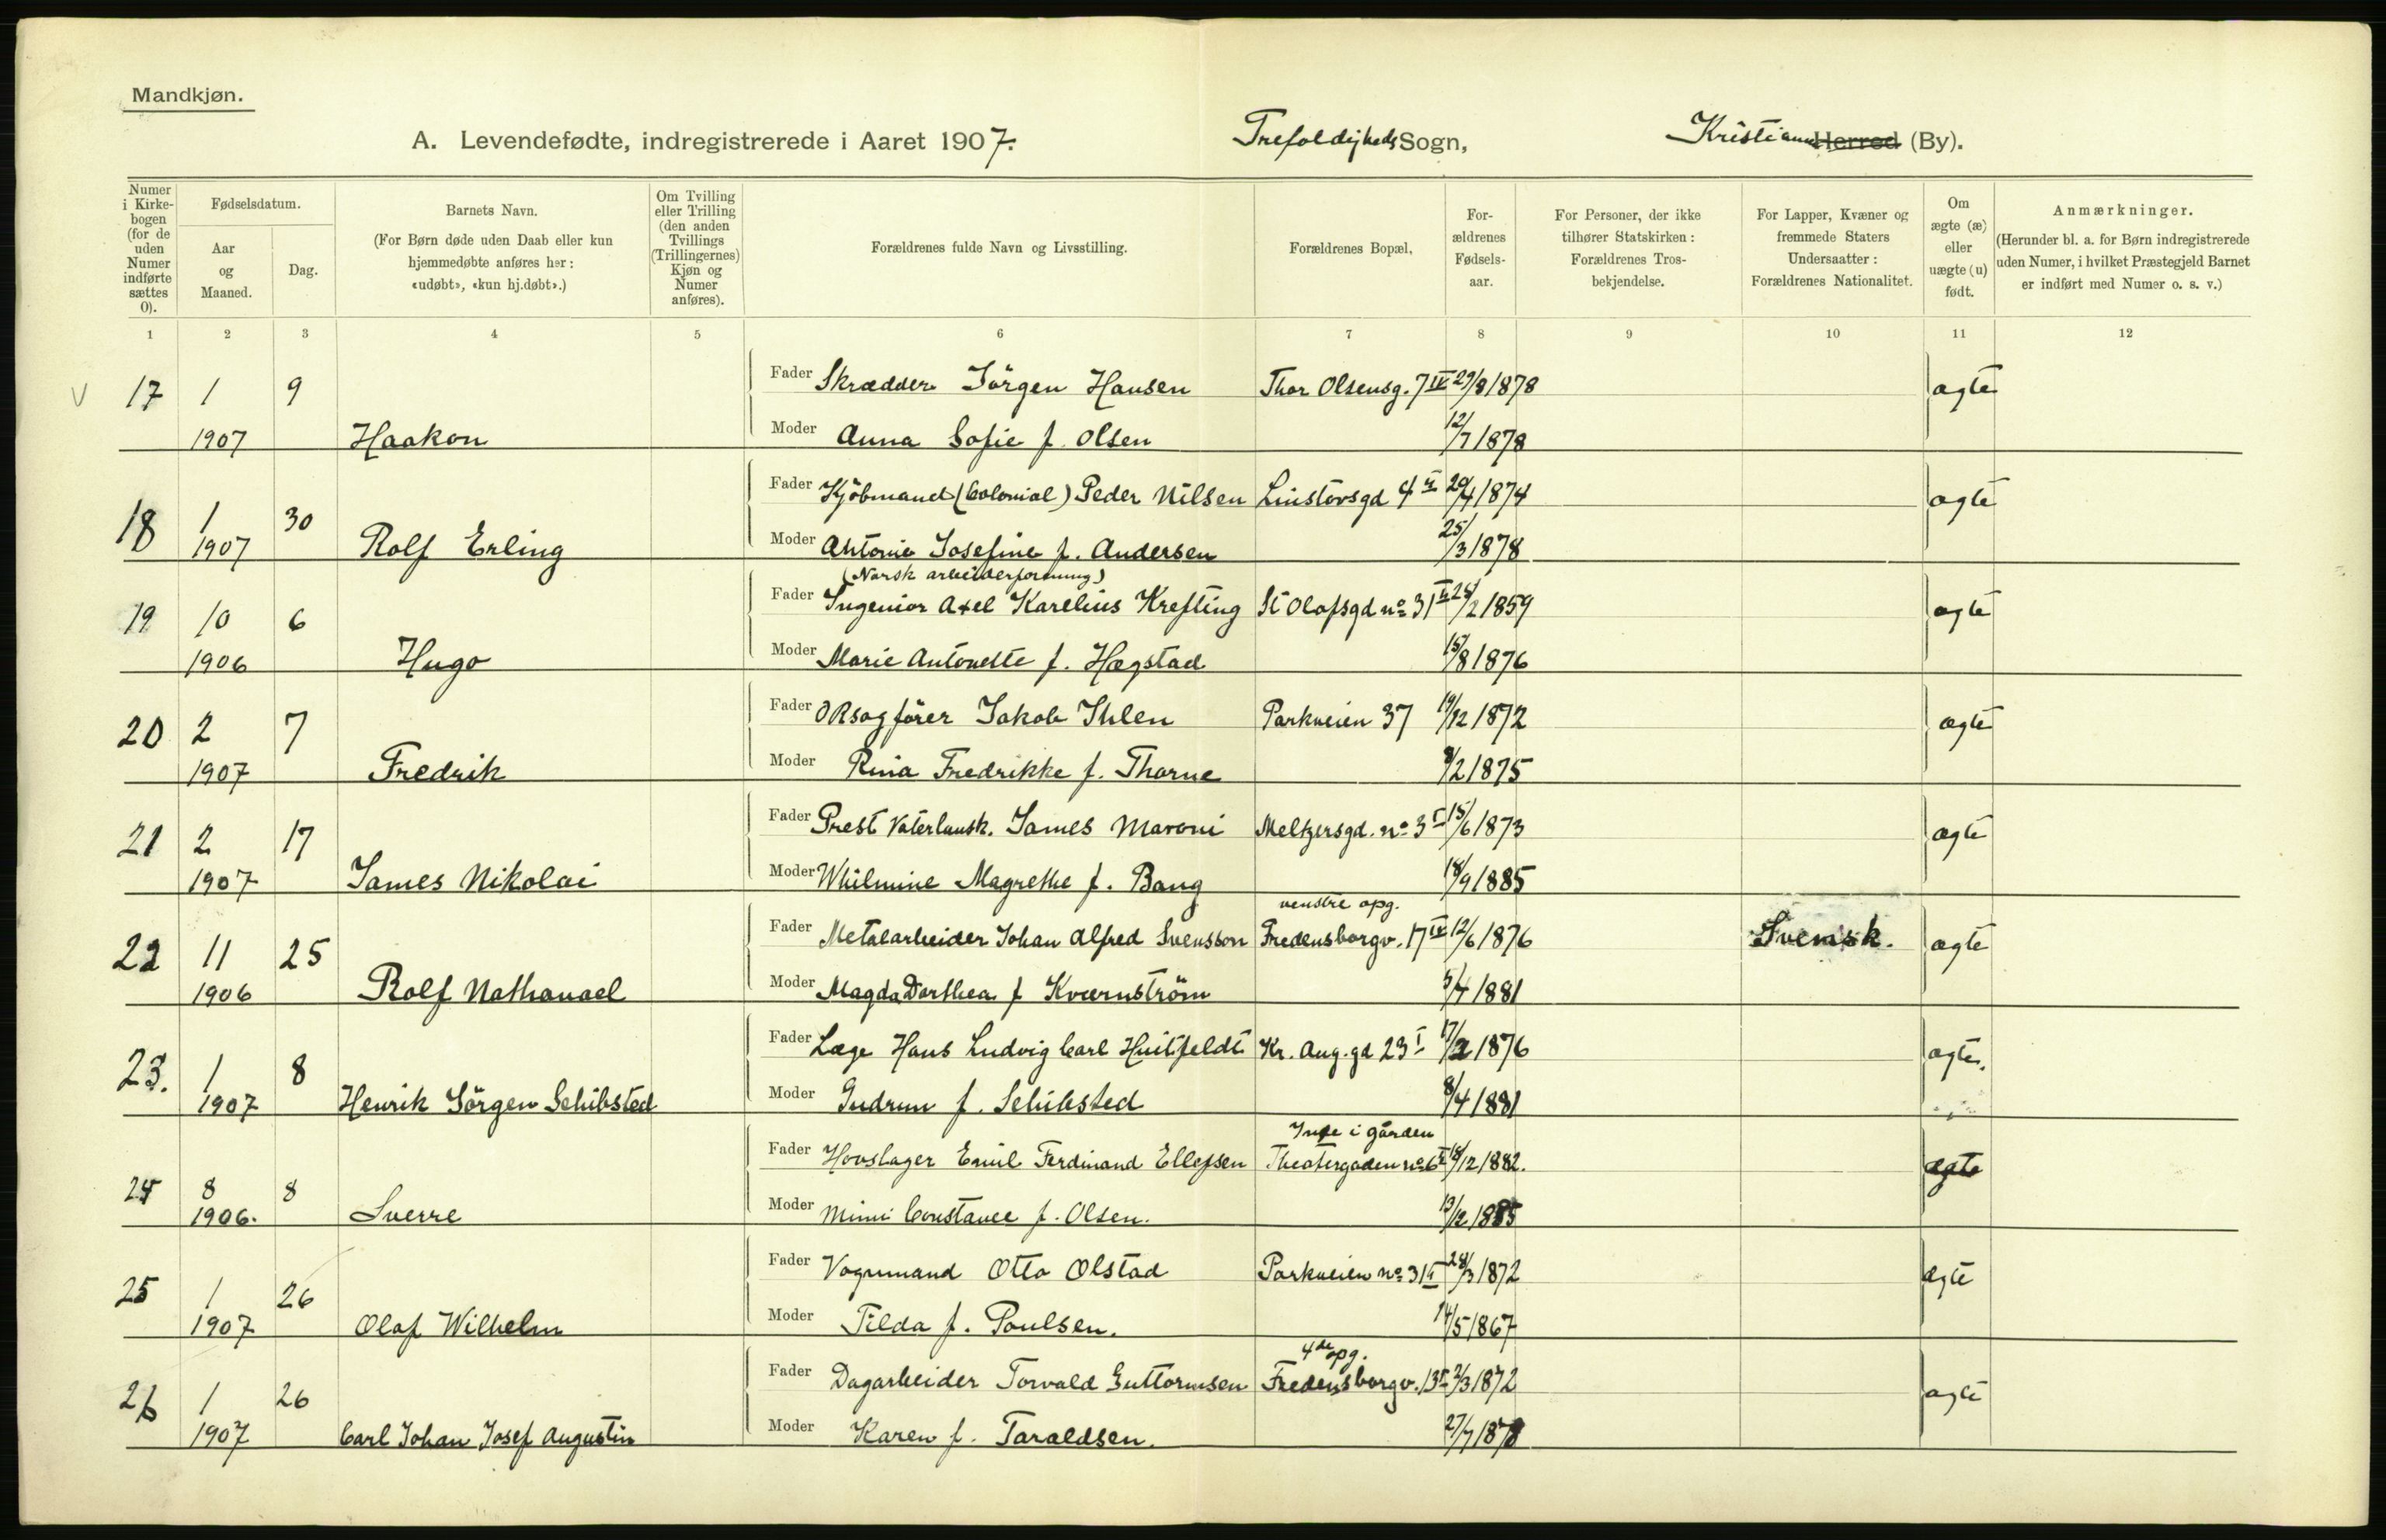 Mandkjøn.
A. Levendefødte, indregistrerede i Aaret 1907. Trefoldigheds Sogn, Kristiania Herred (By).
Numer i Kirkebogen (for de uden Numer indførte sættes 0).
Fødselsdatum.
Aar og Maaned.
Dag.
Barnets Navn.
(For Børn døde uden Daab eller kun hjemmedøbte anføres her: «udøbt», «kun hj.døbt».)
Om Tvilling eller Trilling (den anden Tvillings (Trillingernes) Kjøn og Numer anføres).
Forældrenes fulde Navn og Livsstilling.
Forældrenes Bopæl.
Forældrenes Fødselsaar.
For Personer, der ikke tilhører Statskirken: Forældrenes Trosbekjendelse.
For Lapper, Kvæner og fremmede Staters Undersaatter: Forældrenes Nationalitet.
Om ægte (æ) eller uægte (u) født.
Anmærkninger.
(Herunder bl. a. for Børn indregistrerede uden Numer, i hvilket Præstegjeld Barnet er indført med Numer o. s. v.)
1 2 3 4 5 6 7 8 9 10 11 12
V 17 1 9 Fader Skrædder Jörgen Hansen Thor Olsensg. 7 IV 29/8 1878 ægte
1907 Haakon Moder Anna Sofie f. Olsen 12/7 1878
18 1 30 Fader Kjöbmand (Colonial) Peder Nilsen Linstovsgd 4 II 20/4 1874 ægte
1907 Rolf Erling Moder Antonie Josefine f. Andersen 25/3 1878
(Norsk arbeiderforening)
19 10 6 Fader Ingeniør Axel Karelius Krefting St Olafsgd no 31 II /2 1859 ægte
1906 Hugo Moder Marie Antonette f. Hægstad 15/8 1876
20 2 7 Fader ORsagfører Jakob Ihlen Parkveien 37 19/12 1872 ægte
1907 Fredrik Moder Rina Fredrikke f. Thorne /2 1875
21 2 17 Fader Prest Vaterlansk. James Maroni Meltzersgd. no 3 I 15/6 1873 ægte
1907 James Nikolai Moder Whilmine Magrethe f. Bang 18/9 1885
venstre opg.
22 11 25 Fader Metalarbeider Johan Alfred Svensson Fredensborgv. 17 IV 12/6 1876 Svensk. ægte
1906 Rolf Nathanael Moder Magda Dorthea f Kværnström 5/4 1881
23. 1 8 Fader Læge Hans Ludvig Carl Huitfeldt Kr. Aug.gd 23 I 17/2 1876 ægte.
1907 Henrik Jörgen Schibsted Moder Gudrun f. Schibsted 8/4 1881
Inde i gården
24 8 8 Fader Hovslager Emil Ferdinand Ellefsen Theatergaden no 6 /12 1882. ægte
1906. Sverre Moder Mimi Constance f. Olsen. 13/12 1885
25 1 26 Fader Vognmand Otto Olstad Parkveien no 31 I 28/3 1872 ægte
1907 Olaf Wilhelm Moder Tilda f. Poulsen. 14/5 1867
4de opg.
26 1 26 Fader Dagarbeider Torvald Guttormsen Fredensborgv. 13 /3 1872 ægte
1907 Carl Johan Josef Augustin Moder Karen f. Taraldsen. 27/7 1878